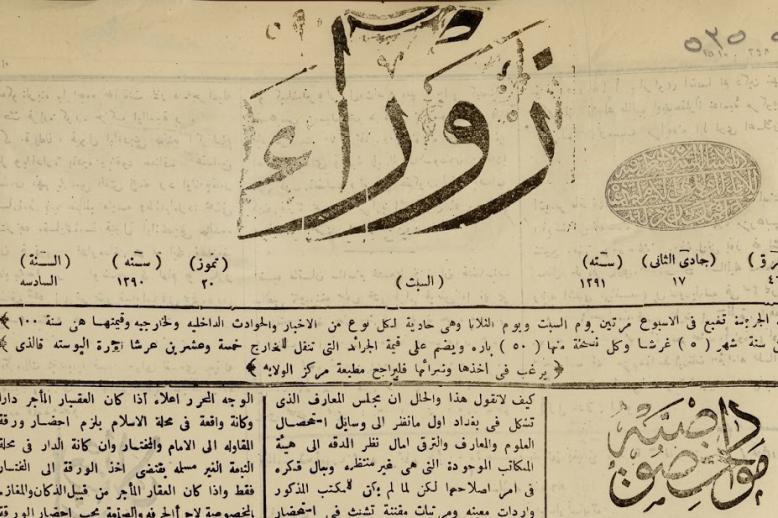 زوراء
(جمادى الثانى) ١٧ (سنه) ١٢٩١ (السبت) (تموز) ٢٠ (سنه) ١٢٩٠ (السنة) السادسه
الجريدة تطبع فى الاسبوع مرتين يوم السبت ويوم الثلاثا وهى حاوية لكل نوع من الاخبار والحوادث الداخليه والخارجيه وقيمتها هى سنة ١٠٠
سنة شهر (٥) غرشا وكل نسخة منها (٥٠) باره ويضم على قيمة الجرائد التى تنقل للخارج خمسة وعشرين غرشا اجرة البوسته فالذى
يرغب فى أخذها وشرائها فليراجع مطبعة مركز الولايه
مواد خصوصيه
كيف لانقول هذا والحال ان مجلس المعارف الذى
تشكل فى بغداد اول مانظر الى وسايل استحصال
العلوم والمعارف والترقى امال نظر الدقه الى هيئة
المكاتب الموجودة التى هى غير منتظمه وبال فكره
فى امر اصلاحها لكن لما لم يكن لمكتب المذكور
واردات معينه ومرتبات مقننة تشبث فى استحضار
الوجه المحرر اعلاه أذا كان العقار المأجر دارا
وكانة واقعة فى محلة الاسلام يلزم احضار ورقة
المقاوله الى الامام والمختار وان كانة الدار فى محلة
التبعة الغير مسلمه يقتضى اخذ الورقة الى المختار
فقط واذا كان العقار المأجر من قبيل الدكان والمغازه